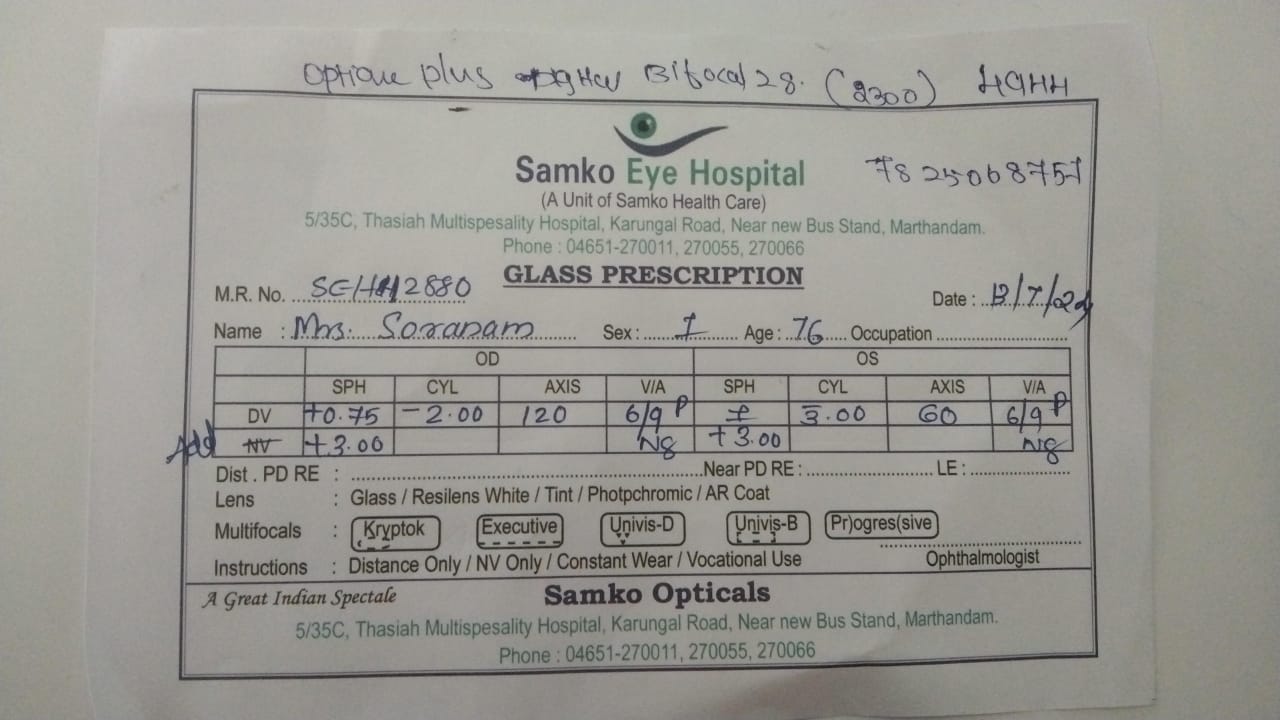 Optique plus Bifocal 28. (2300)
Samko Eye Hospital
7825068757
(A Unit of Samko Health Care)
5/35C, Thasiah Multispesality Hospital, Karungal Road, Near new Bus Stand, Marthandam.
Phone : 04651-270011, 270055, 270066
GLASS PRESCRIPTION
M.R. No. 2880
Date : 13/7/24
Name : Mrs. Soranam Sex : Age : 76 Occupation
OD OS
SPH CYL AXIS V/A SPH CYL AXIS V/A
DV +0.75 -2.00 120 6/9 P 3.00 60 6/9 P
Add NV +3.00 N8 +3.00 N8
Dist . PD RE : Near PD RE : LE :
Lens : Glass / Resilens White / Tint / Photpchromic / AR Coat
Multifocals : Kryptok Executive Univis-D Univis-B Pr)ogres(sive
Ophthalmologist
Instructions : Distance Only / NV Only / Constant Wear / Vocational Use
A Great Indian Spectale
Samko Opticals
5/35C, Thasiah Multispesality Hospital, Karungal Road, Near new Bus Stand, Marthandam.
Phone : 04651-270011, 270055, 270066